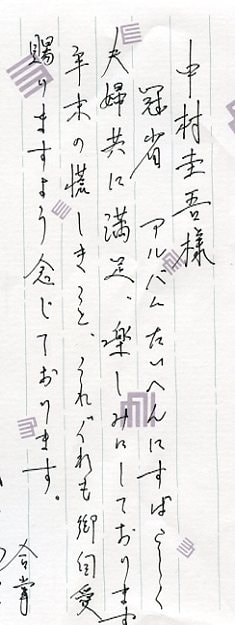 中村圭吾様
冠省 アルバムたいへんにすばらしく
夫婦共に満足、楽しみにしております
年末の慌しきこと、くれぐれも御自愛
賜りますよう念じております。
合掌